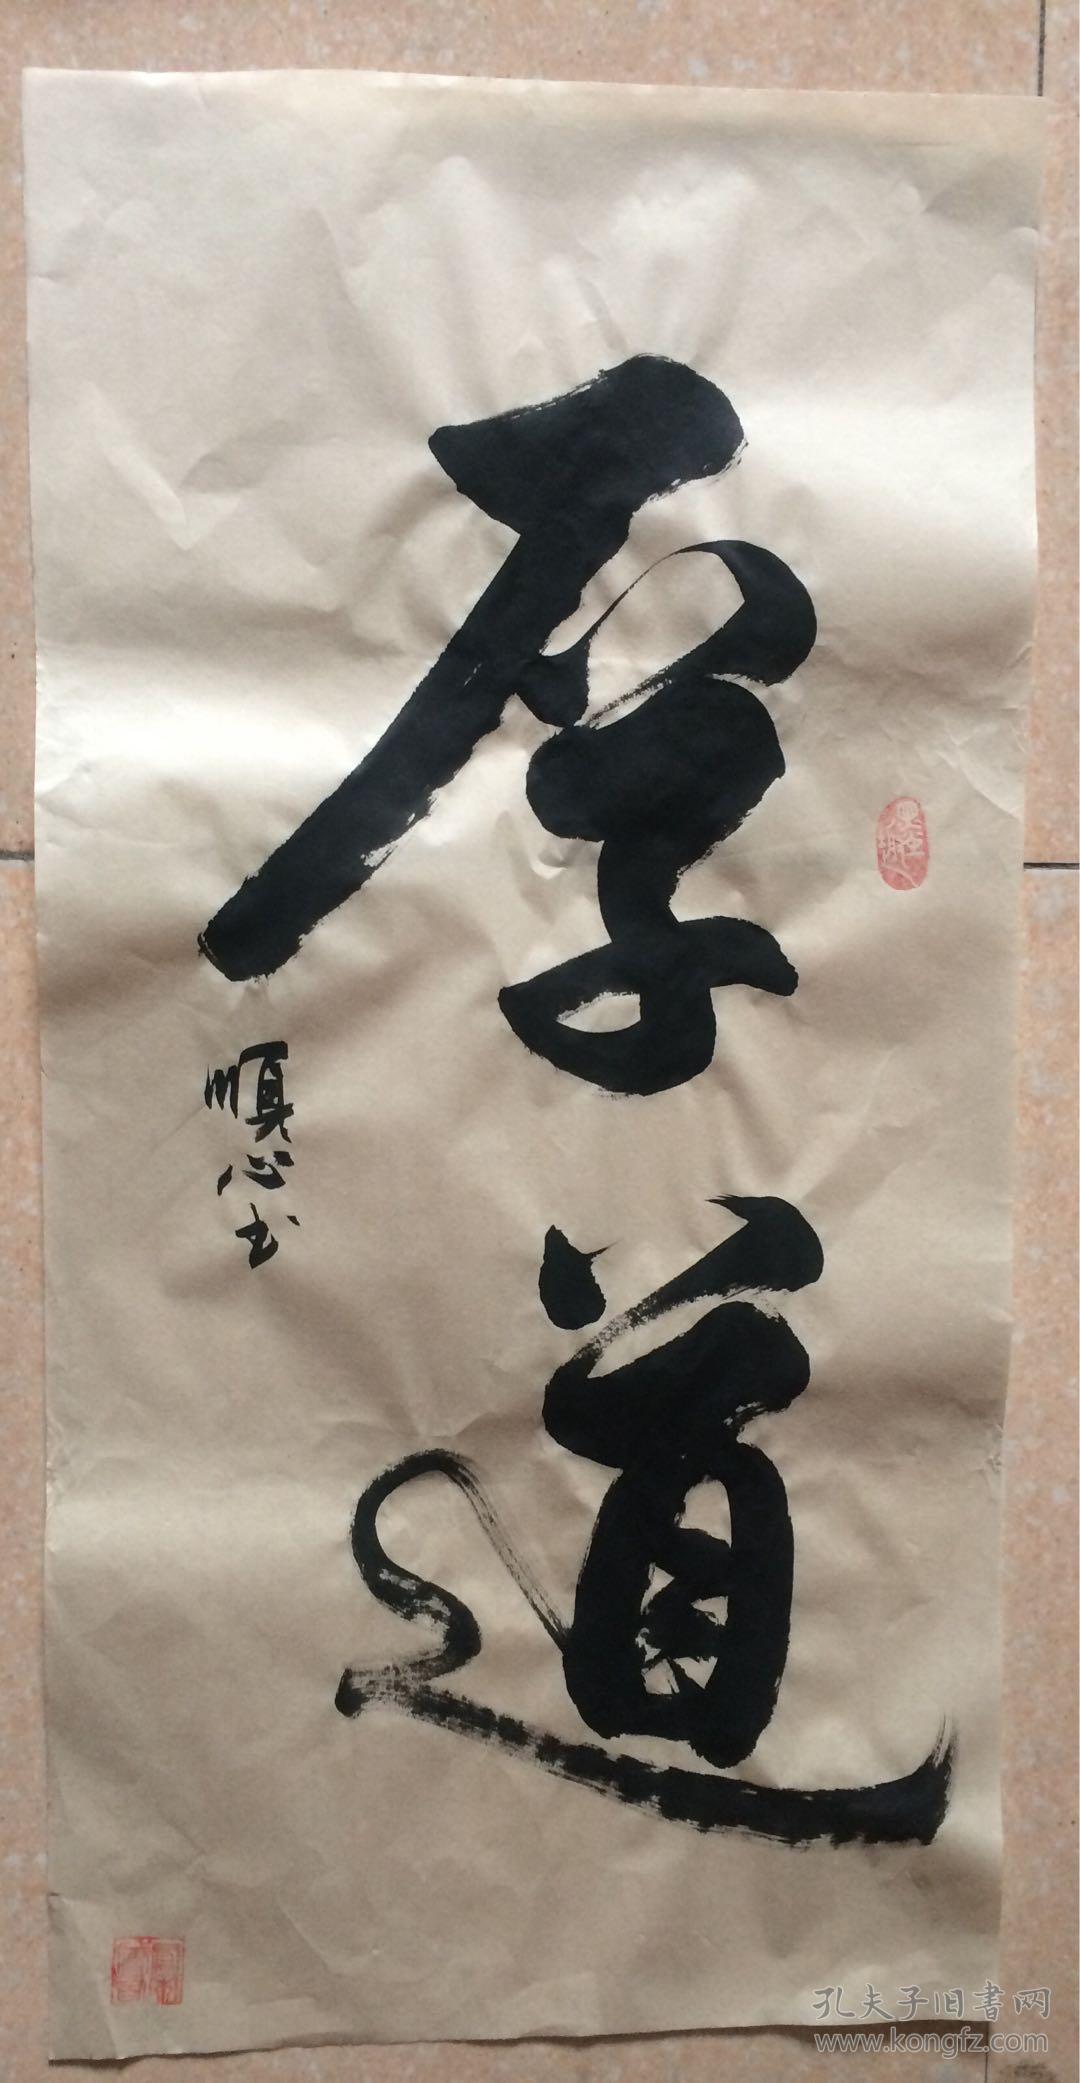 厚道
順心书
孔夫子旧書网
www.kongfz.com